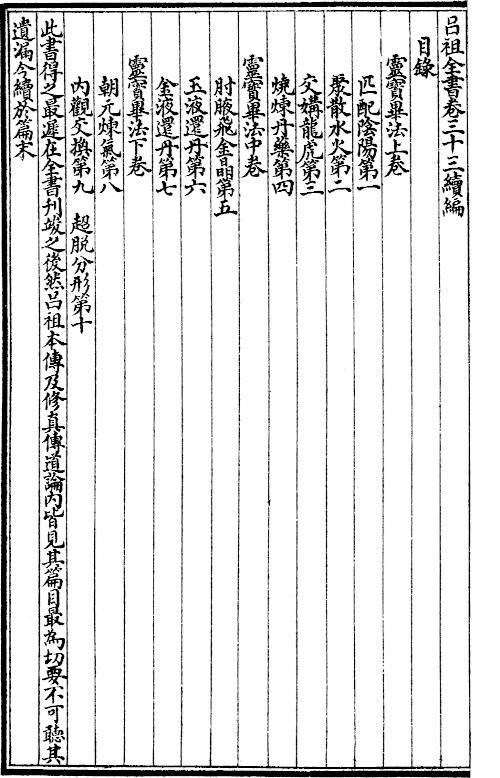 呂祖全書卷三十三續編
目錄
靈寶畢法上卷
匹配陰陽第一
聚散水火第二
交媾龍虎第三
燒煉丹藥第四
靈寶畢法中卷
肘腋飛金晶第五
玉液還丹第六
金液還丹第七
靈寶畢法下卷
朝元煉氣第八
內觀交換第九　超脫分形第十
此書得之最遲在全書刊竣之後然呂祖本傳及修真傳道論內皆見其篇目最為切要不可聽其
遺漏今續於篇末